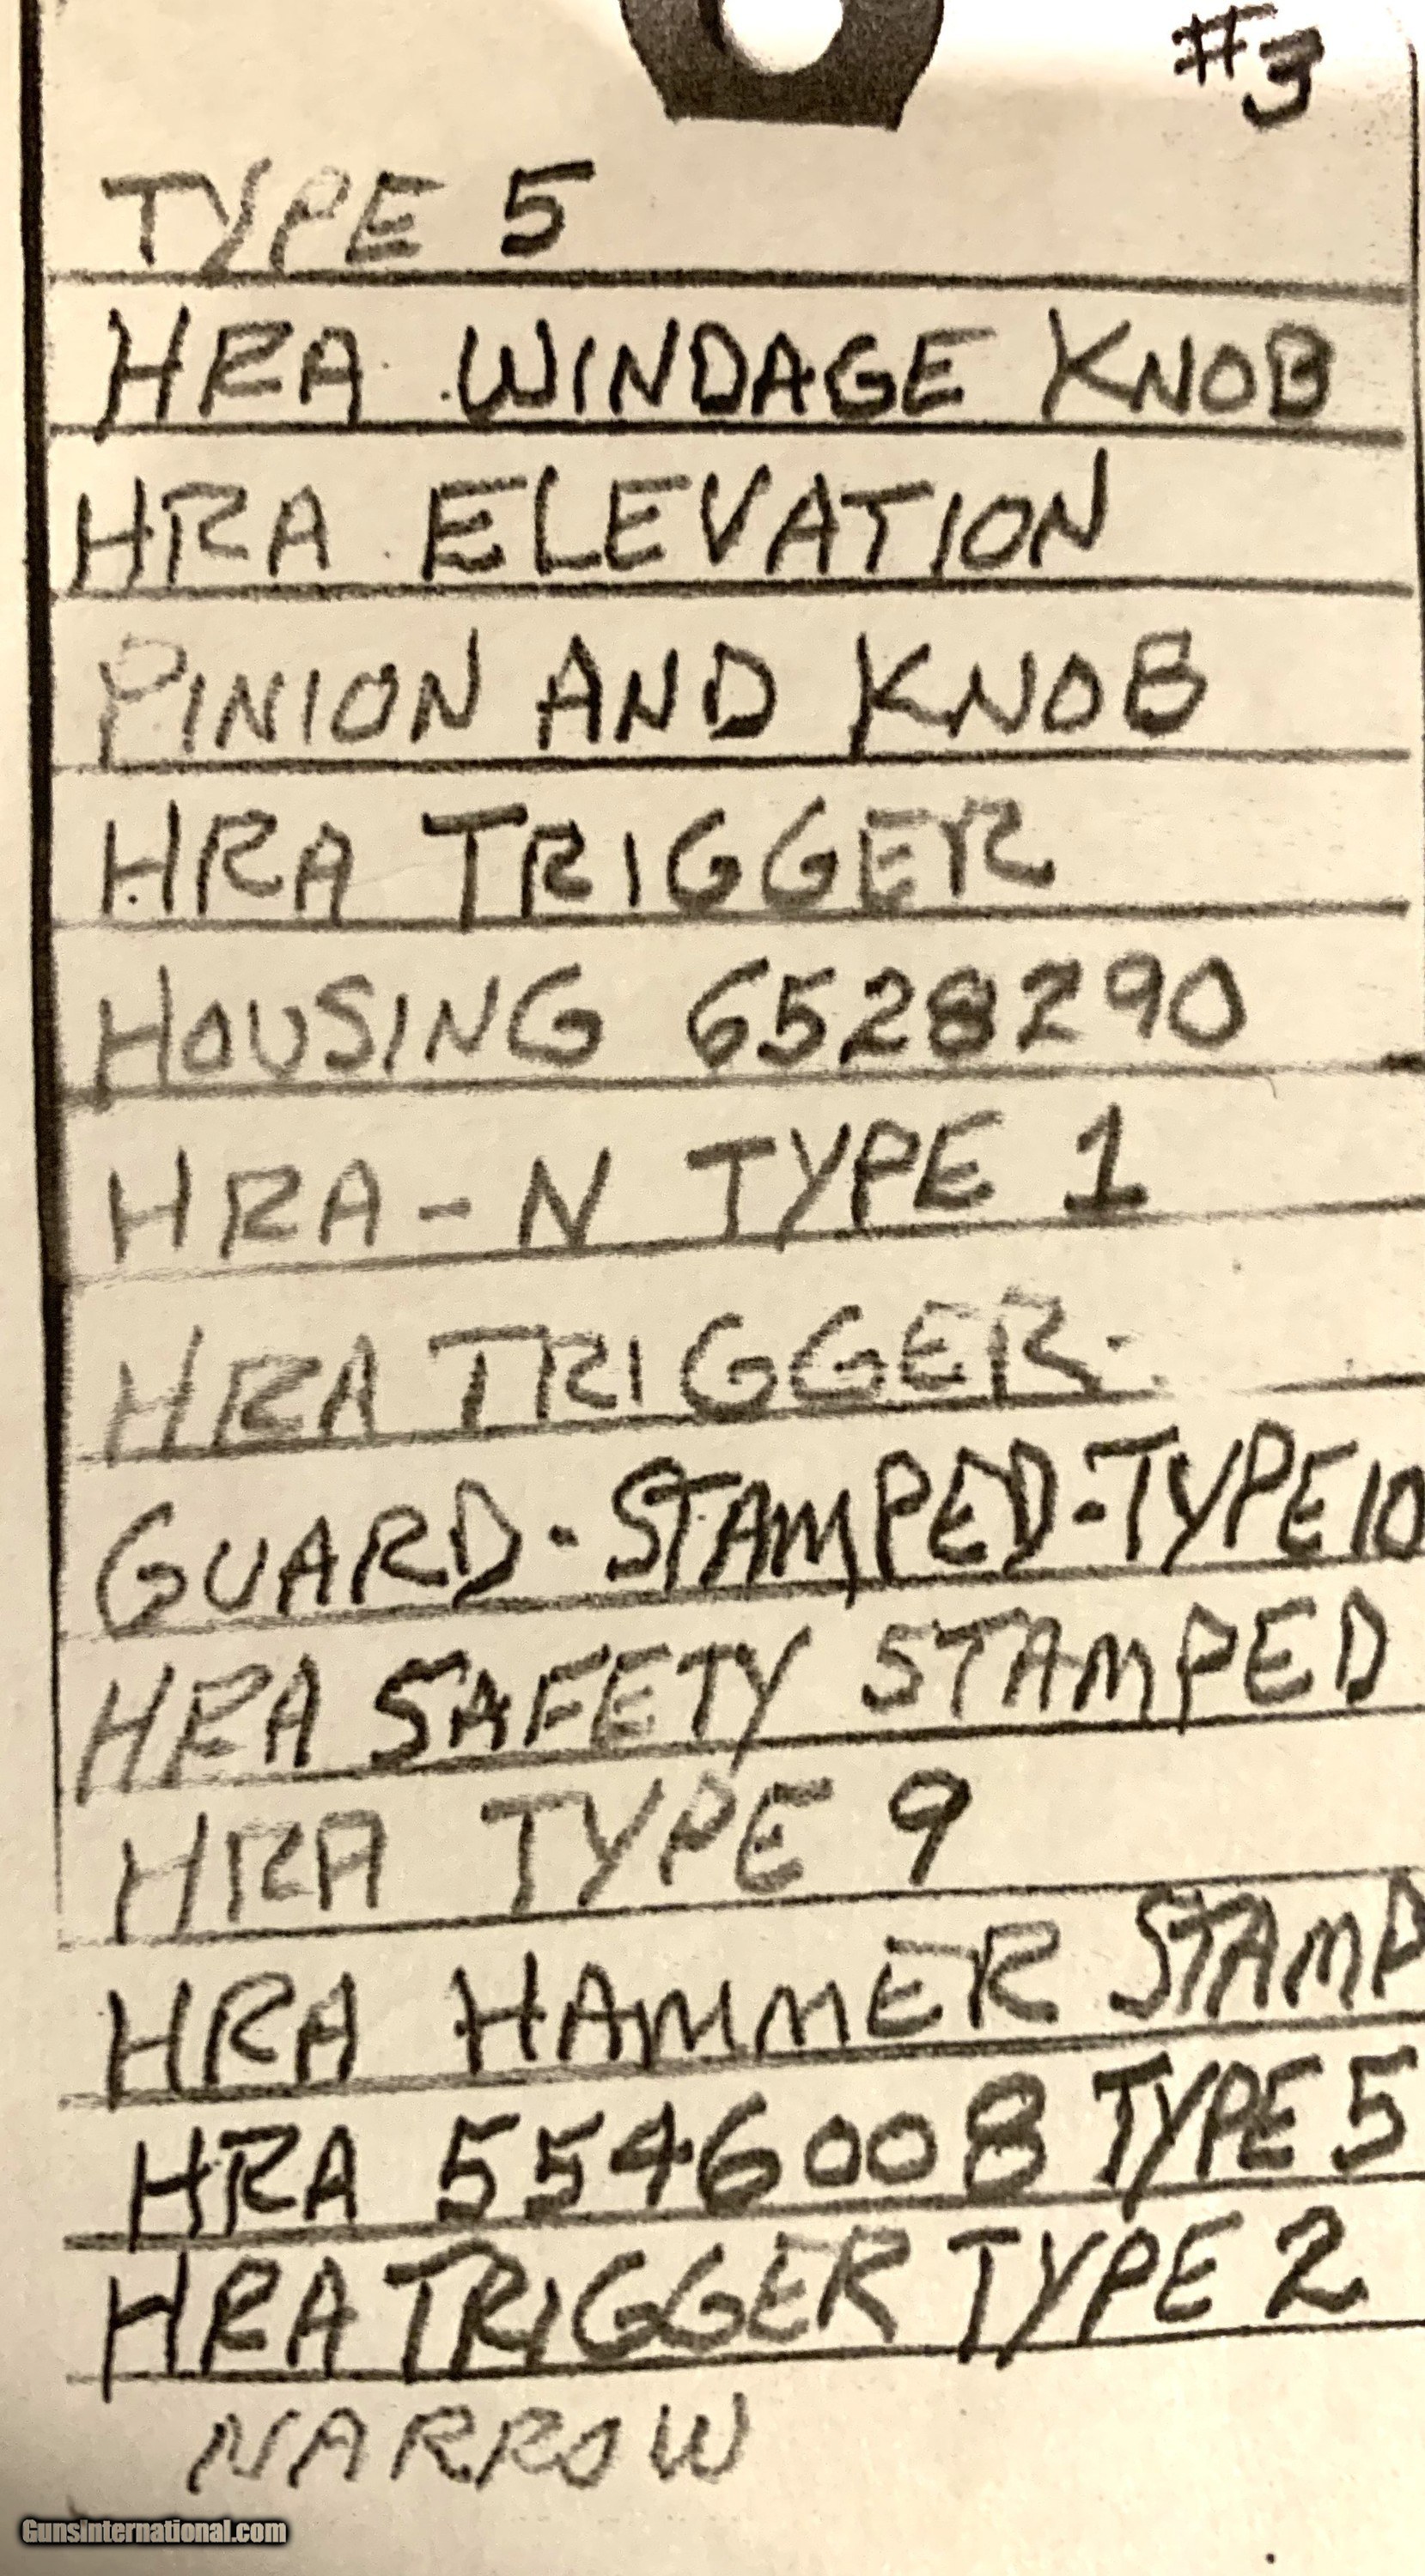 #3
TYPE 5
HRA WINDAGE KNOB
HRA ELEVATION
PINION AND KNOB
HRA TRIGGER
HOUSING 6528290
HRA-N TYPE 1
HRA TRIGGER-
GUARD-STAMPED-TYPE 10
HRA SAFETY STAMPED
HRA TYPE 9
HRA HAMMER STAMP
HRA 5546008 TYPE 5
HRA TRIGGER TYPE 2
NARROW
GunsInternational.com